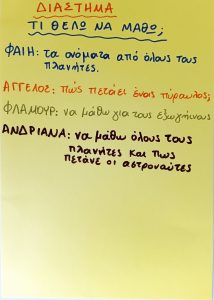 ΔΙΑΣΤΗΜΑ
ΤΙ ΘΕΛΩ ΝΑ ΜΑΘΩ;
ΦΑΙΗ: τα ονόματα από όλους τους
πλανήτες.
ΑΓΓΕΛΟΣ: πώς πετάει ένας πύραυλος;
ΦΛΑΜΟΥΡ: να μάθω για τους εξωγήινους
ΑΝΔΡΙΑΝΑ: να μάθω όλους τους
πλανήτες και πως
πετάνε οι αστροναύτες